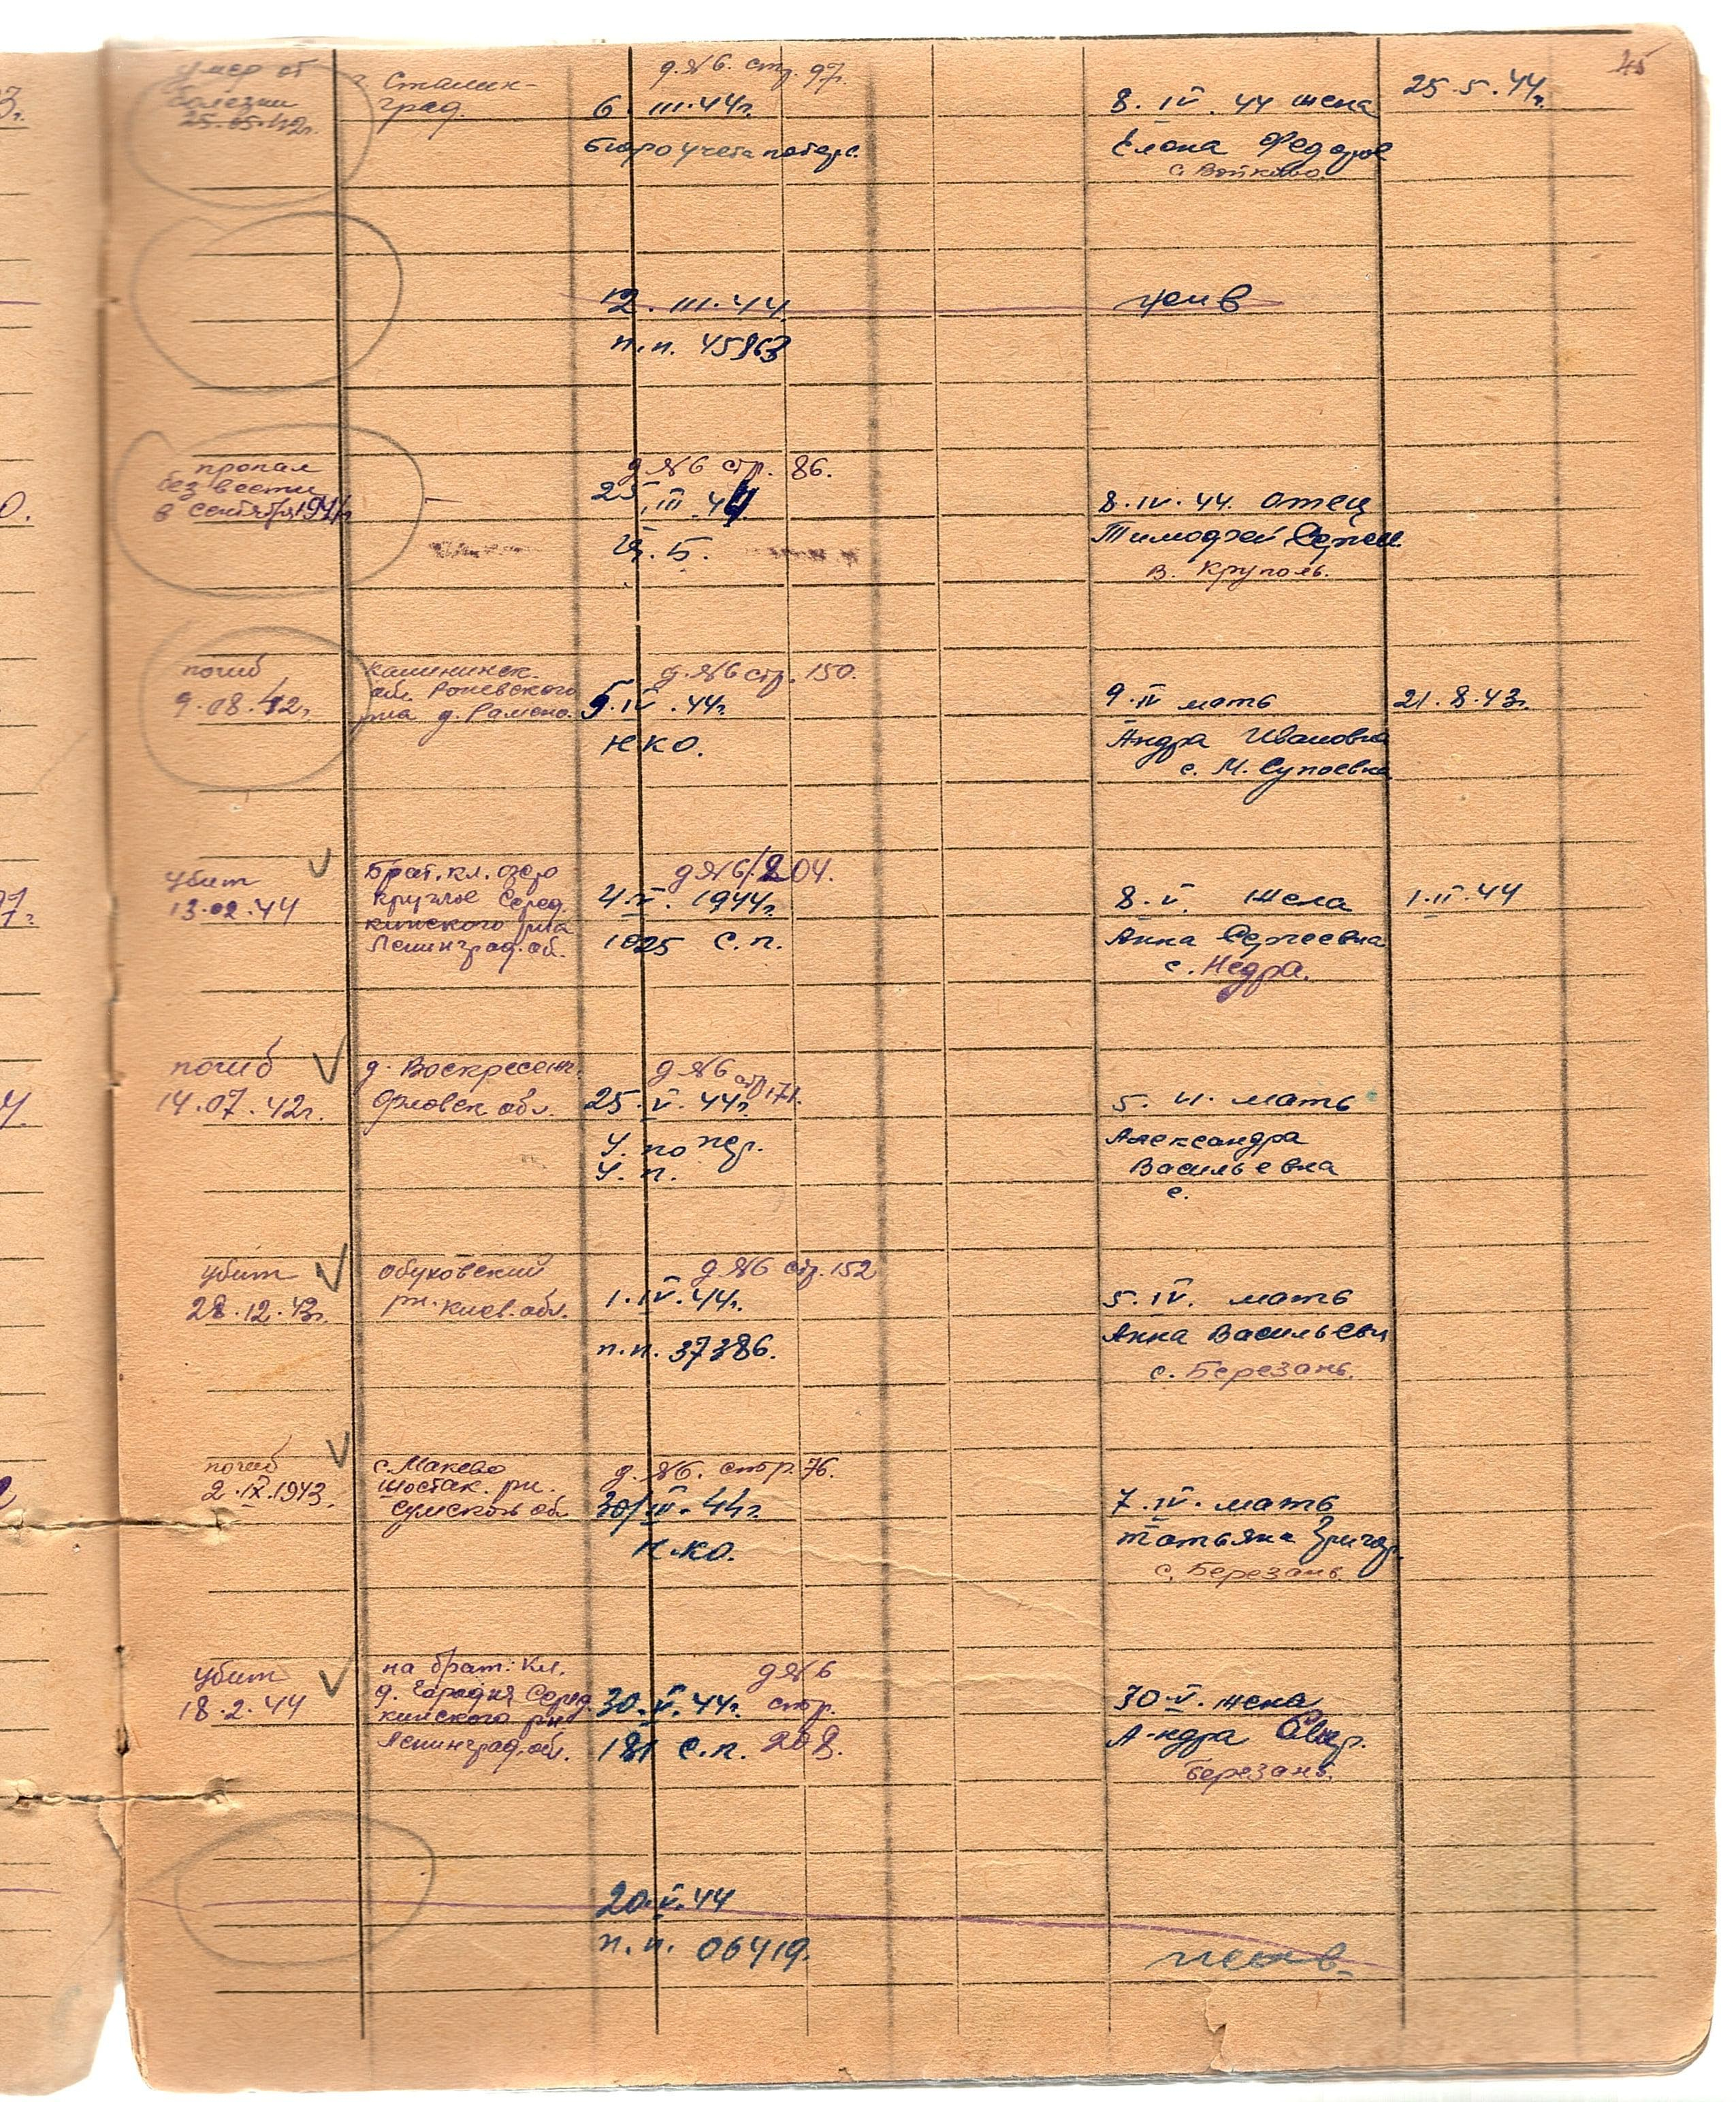 45
умер от
болезни
25.05.42г.
г. Сталин-
град.
д.№6. стр. 97.
6. III.44г.
бюро учета потерь.
8. IV. 44 жена
Елена Федоров
с. Войково.
25.5.44г.
12. III.44
п.п. 45863
жив
пропал
без вести
в сентябре 1941г
—
д №6 стр. 86.
25.III.44
8.IV.44. отец
Тимофей Сергеев.
В. Круполь.
погиб
9.08.42г.
Калининск.
обл.
р-на д.
д.№6 стр. 150.
5.IV.44г.
НКО.
9.IV мать
Андра Ивановна
с. М. Супоевка
21.8.43г.
убит
13.02.44
Брат. кл. озеро
Круглое Серед.
кинского р/на
Ленинград. об.
д №6/204.
4.V. 1944г.
1025 с.п.
8.V. жена
Анна Сергеевна
с. Недра.
1.II.44
погиб
14.07.42г.
д. Воскресенс.
Орловск обл.
д №6
стр 171.
25.V.44г.
У. по пер.
У. п.
5. VI. мать
Александра
Васильевна
с.
убит
28.12.43г.
Обуховский
рн. Киев. обл.
д №6 стр. 152
1.IV.44г.
п.п. 37386.
5.IV. мать
Анна Васильевн
с. Березань.
погиб
2.IX.1943.
с. Макево
Шостак. рн.
Сумской обл
д. №6. стор. 76.
30/III-44г.
НКО.
7.IV. мать
Татьяна Григор.
с. Березань
убит
18.2.44
на брат. кл.
д. Городня Серед.
кинского рн
Ленинград. обл.
д №6
стор.
208.
30.V.44г.
181 с.п.
30.V. жена
Андра
Березань.
20.V.44
п.п. 06419.
жив.